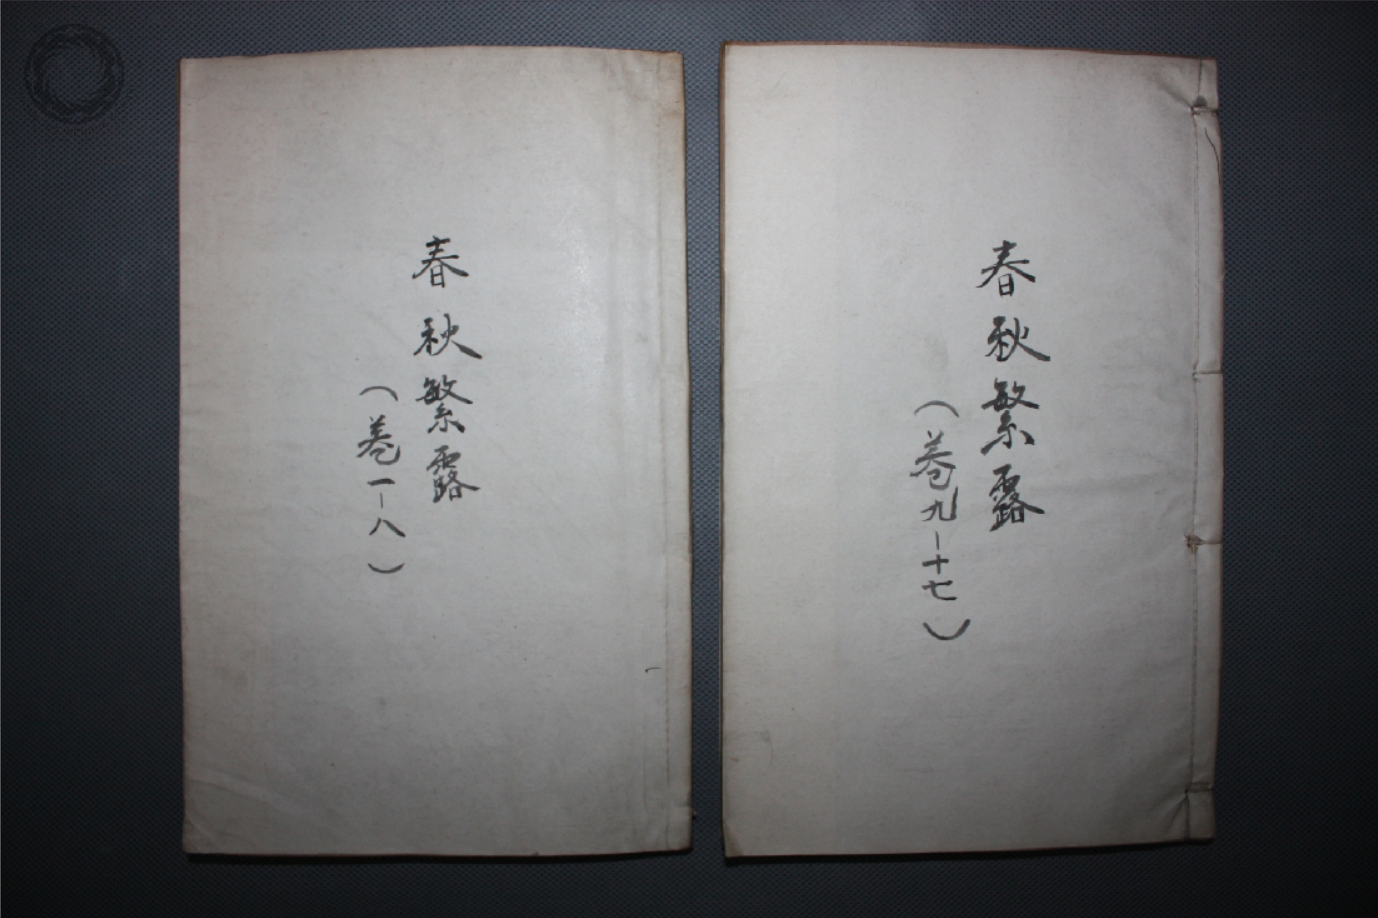 春秋繁露
（卷一－八）
春秋繁露
（卷九－十七）